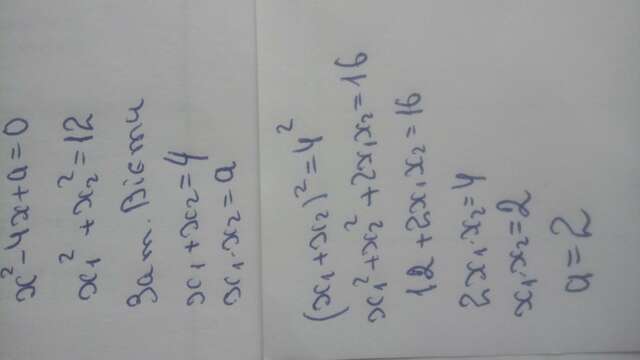 x² - 4x + a = 0
x₁² + x₂² = 12
За т. Вієти
x₁ + x₂ = 4
x₁ · x₂ = a
(x₁ + x₂)² = 4²
x₁² + x₂² + 2x₁x₂ = 16
12 + 2x₁x₂ = 16
2x₁ · x₂ = 4
x₁ · x₂ = 2
a = 2